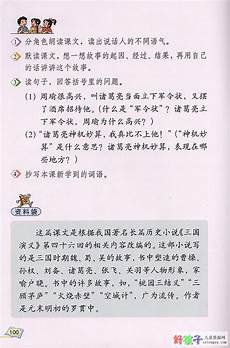 分角色朗读课文，读出说话人的不同语气。
默读课文，想一想故事的起因、经过、结果，再用自己的话讲讲这个故事。
读句子，回答括号里的问题。
（1）周瑜很高兴，叫诸葛亮当面立下军令状，又摆了酒席招待他。（什么是“军令状”？诸葛亮当面立下军令状，周瑜为什么高兴？）
（2）“诸葛亮神机妙算，我真比不上他！”（“神机妙算”是什么意思？诸葛亮的神机妙算，表现在哪些地方？）
抄写本课新学到的词语。
资料袋
这篇课文是根据我国著名长篇历史小说《三国演义》第四十六回的相关内容改编的。这部小说写的是三国时期魏、蜀、吴的故事。书中塑造的曹操、孙权、刘备、诸葛亮、张飞、关羽等人物形象，家喻户晓。书中的许多故事，如，“桃园三结义”“三顾茅庐”“火烧赤壁”“空城计”，广为流传。作者是元末明初的罗贯中。
100
好孩子